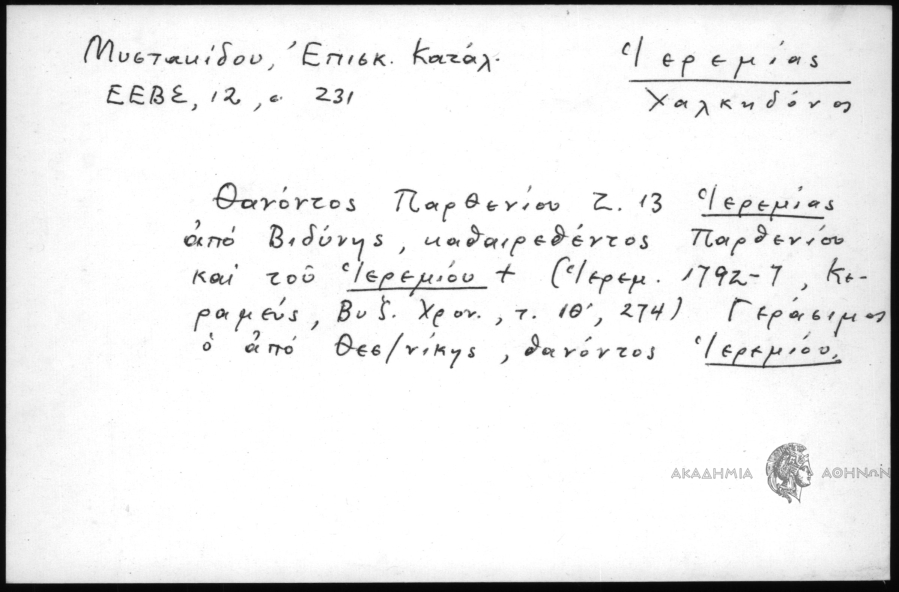 Μυστακίδου, Ἐπισκ. Κατάλ.
ΕΕΒΣ, 12, σ. 231
Ἱερεμίας
Χαλκηδόνος
Θανόντος Παρθενίου Ζ. 13 Ἱερεμίας
ἀπό Βιδύνης, καθαιρεθέντος Παρθενίου
καί τοῦ Ἱερεμίου + (Ἱερεμ. 1792-7, Κε-
ραμεύς, Βυζ. Χρον., τ. ΙΘ', 274) Γεράσιμος
ὁ ἀπό Θεσ/νίκης, θανόντος Ἱερεμίου.
ΑΚΑΔΗΜΙΑ ΑΘΗΝΩΝ